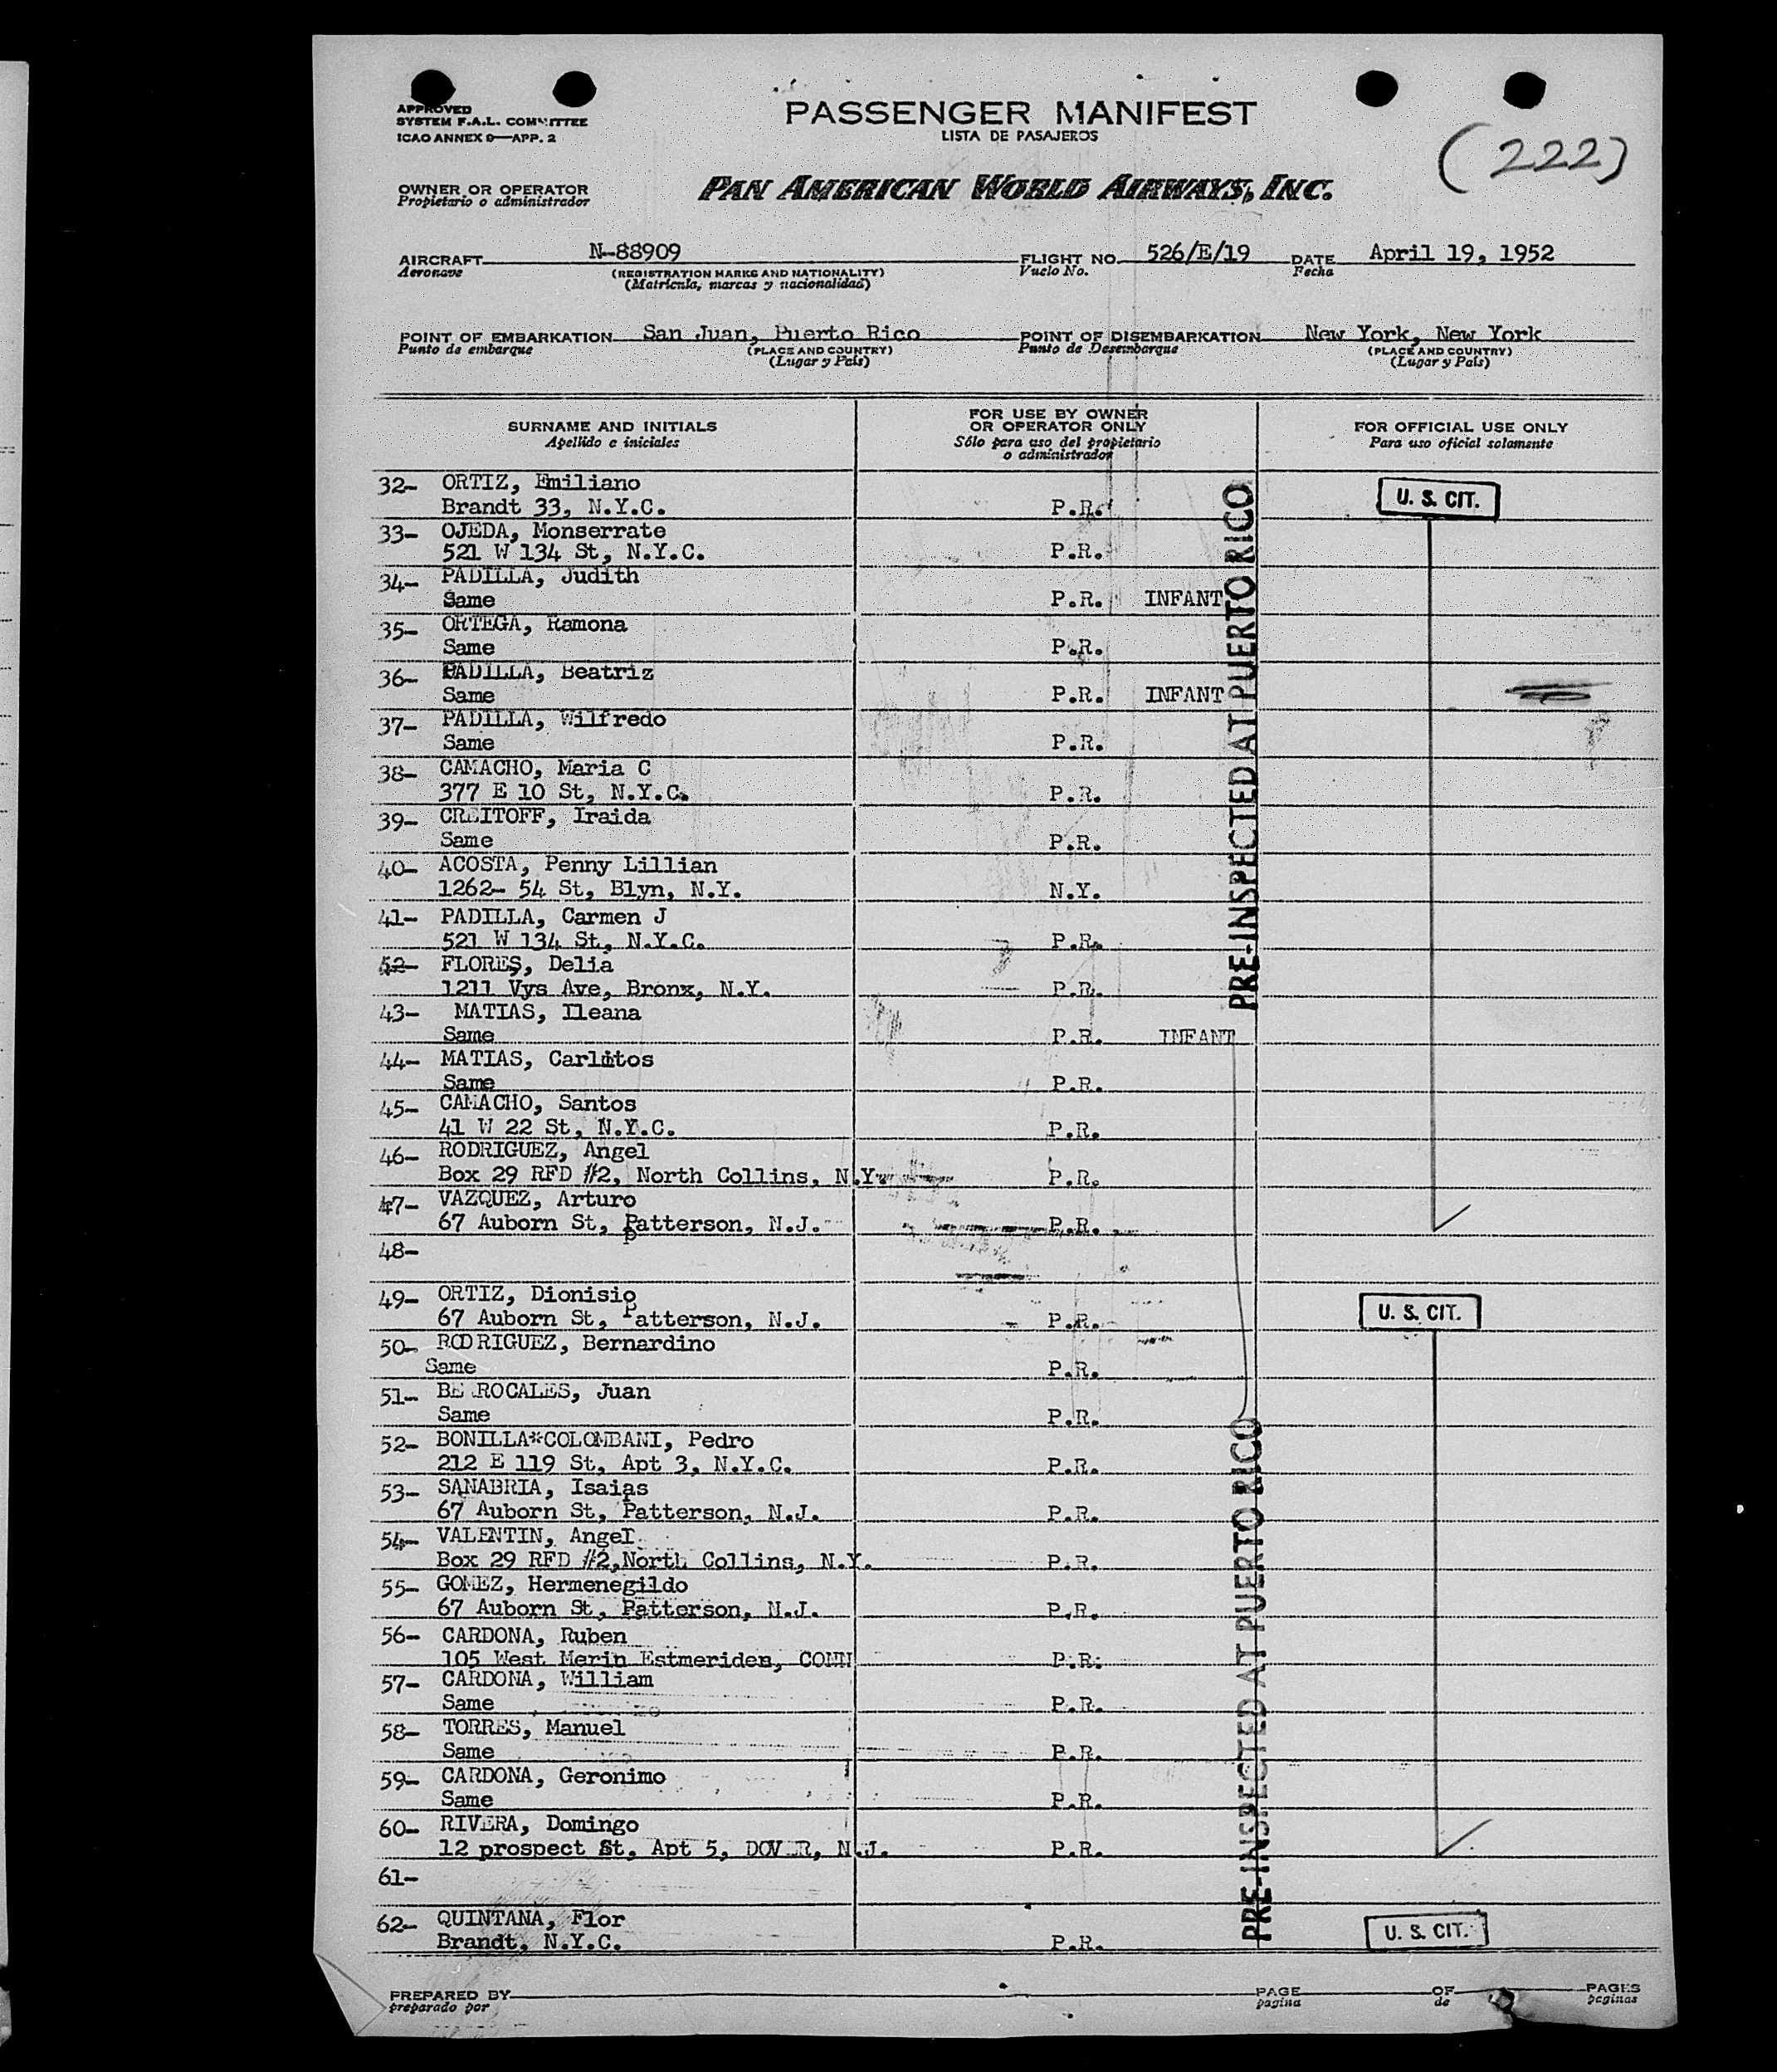 APPROVED
SYSTEM F.A.L. COMMITTEE
ICAO ANNEX 9—APP. 2
PASSENGER MANIFEST
LISTA DE PASAJEROS
(222)
OWNER OR OPERATOR
Propietario o administrador
PAN AMERICAN WORLD AIRWAYS, INC.
AIRCRAFT N-88909 FLIGHT NO. 526/E/19 DATE April 19, 1952
Aeronave (REGISTRATION MARKS AND NATIONALITY) Vuelo No. Fecha
(Matrícula, marcas y nacionalidad)
POINT OF EMBARKATION San Juan, Puerto Rico POINT OF DISEMBARKATION New York, New York
Punto de embarque (PLACE AND COUNTRY) Punto de Desembarque (PLACE AND COUNTRY)
(Lugar y País) (Lugar y País)
SURNAME AND INITIALS FOR USE BY OWNER OR OPERATOR ONLY FOR OFFICIAL USE ONLY
Apellido e iniciales Sólo para uso del propietario o administrador Para uso oficial solamente
32- ORTIZ, Emiliano
Brandt 33, N.Y.C. P.R. U. S. CIT.
33- OJEDA, Monserrate
521 W 134 St, N.Y.C. P.R.
34- PADILLA, Judith
Same P.R. INFANT
35- ORTEGA, Ramona
Same P.R.
36- PADILLA, Beatriz
Same P.R. INFANT
37- PADILLA, Wilfredo
Same P.R.
38- CAMACHO, Maria C
377 E 10 St, N.Y.C. P.R.
39- CREITOFF, Iraida
Same P.R.
40- ACOSTA, Penny Lillian
1262- 54 St, Blyn, N.Y. N.Y.
41- PADILLA, Carmen J
521 W 134 St, N.Y.C. P.R.
52- FLORES, Delia
1211 Vys Ave, Bronx, N.Y. P.R.
43- MATIAS, Ileana
Same P.R. INFANT
44- MATIAS, Carlitos
Same P.R.
45- CAMACHO, Santos
41 W 22 St, N.Y.C. P.R.
46- RODRIGUEZ, Angel
Box 29 RFD #2, North Collins, N.Y. P.R.
47- VAZQUEZ, Arturo
67 Auborn St, Patterson, N.J. P.R.
48-
49- ORTIZ, Dionisio
67 Auborn St, Patterson, N.J. P.R. U. S. CIT.
50- RODRIGUEZ, Bernardino
Same P.R.
51- BERROCALES, Juan
Same P.R.
52- BONILLA*COLOMBANI, Pedro
212 E 119 St, Apt 3, N.Y.C. P.R.
53- SANABRIA, Isaias
67 Auborn St, Patterson, N.J. P.R.
54- VALENTIN, Angel
Box 29 RFD #2,North Collins, N.Y. P.R.
55- GOMEZ, Hermenegildo
67 Auborn St, Patterson, N.J. P.R.
56- CARDONA, Ruben
105 West Merin Estmeriden, CONN P.R.
57- CARDONA, William
Same P.R.
58- TORRES, Manuel
Same P.R.
59- CARDONA, Geronimo
Same P.R.
60- RIVERA, Domingo
12 prospect St, Apt 5, DOVER, N.J. P.R.
61-
62- QUINTANA, Flor
Brandt, N.Y.C. P.R. U. S. CIT.
PRE-INSPECTED AT PUERTO RICO
PRE-INSPECTED AT PUERTO RICO
PREPARED BY PAGE OF PAGES
preparado por pagina de paginas